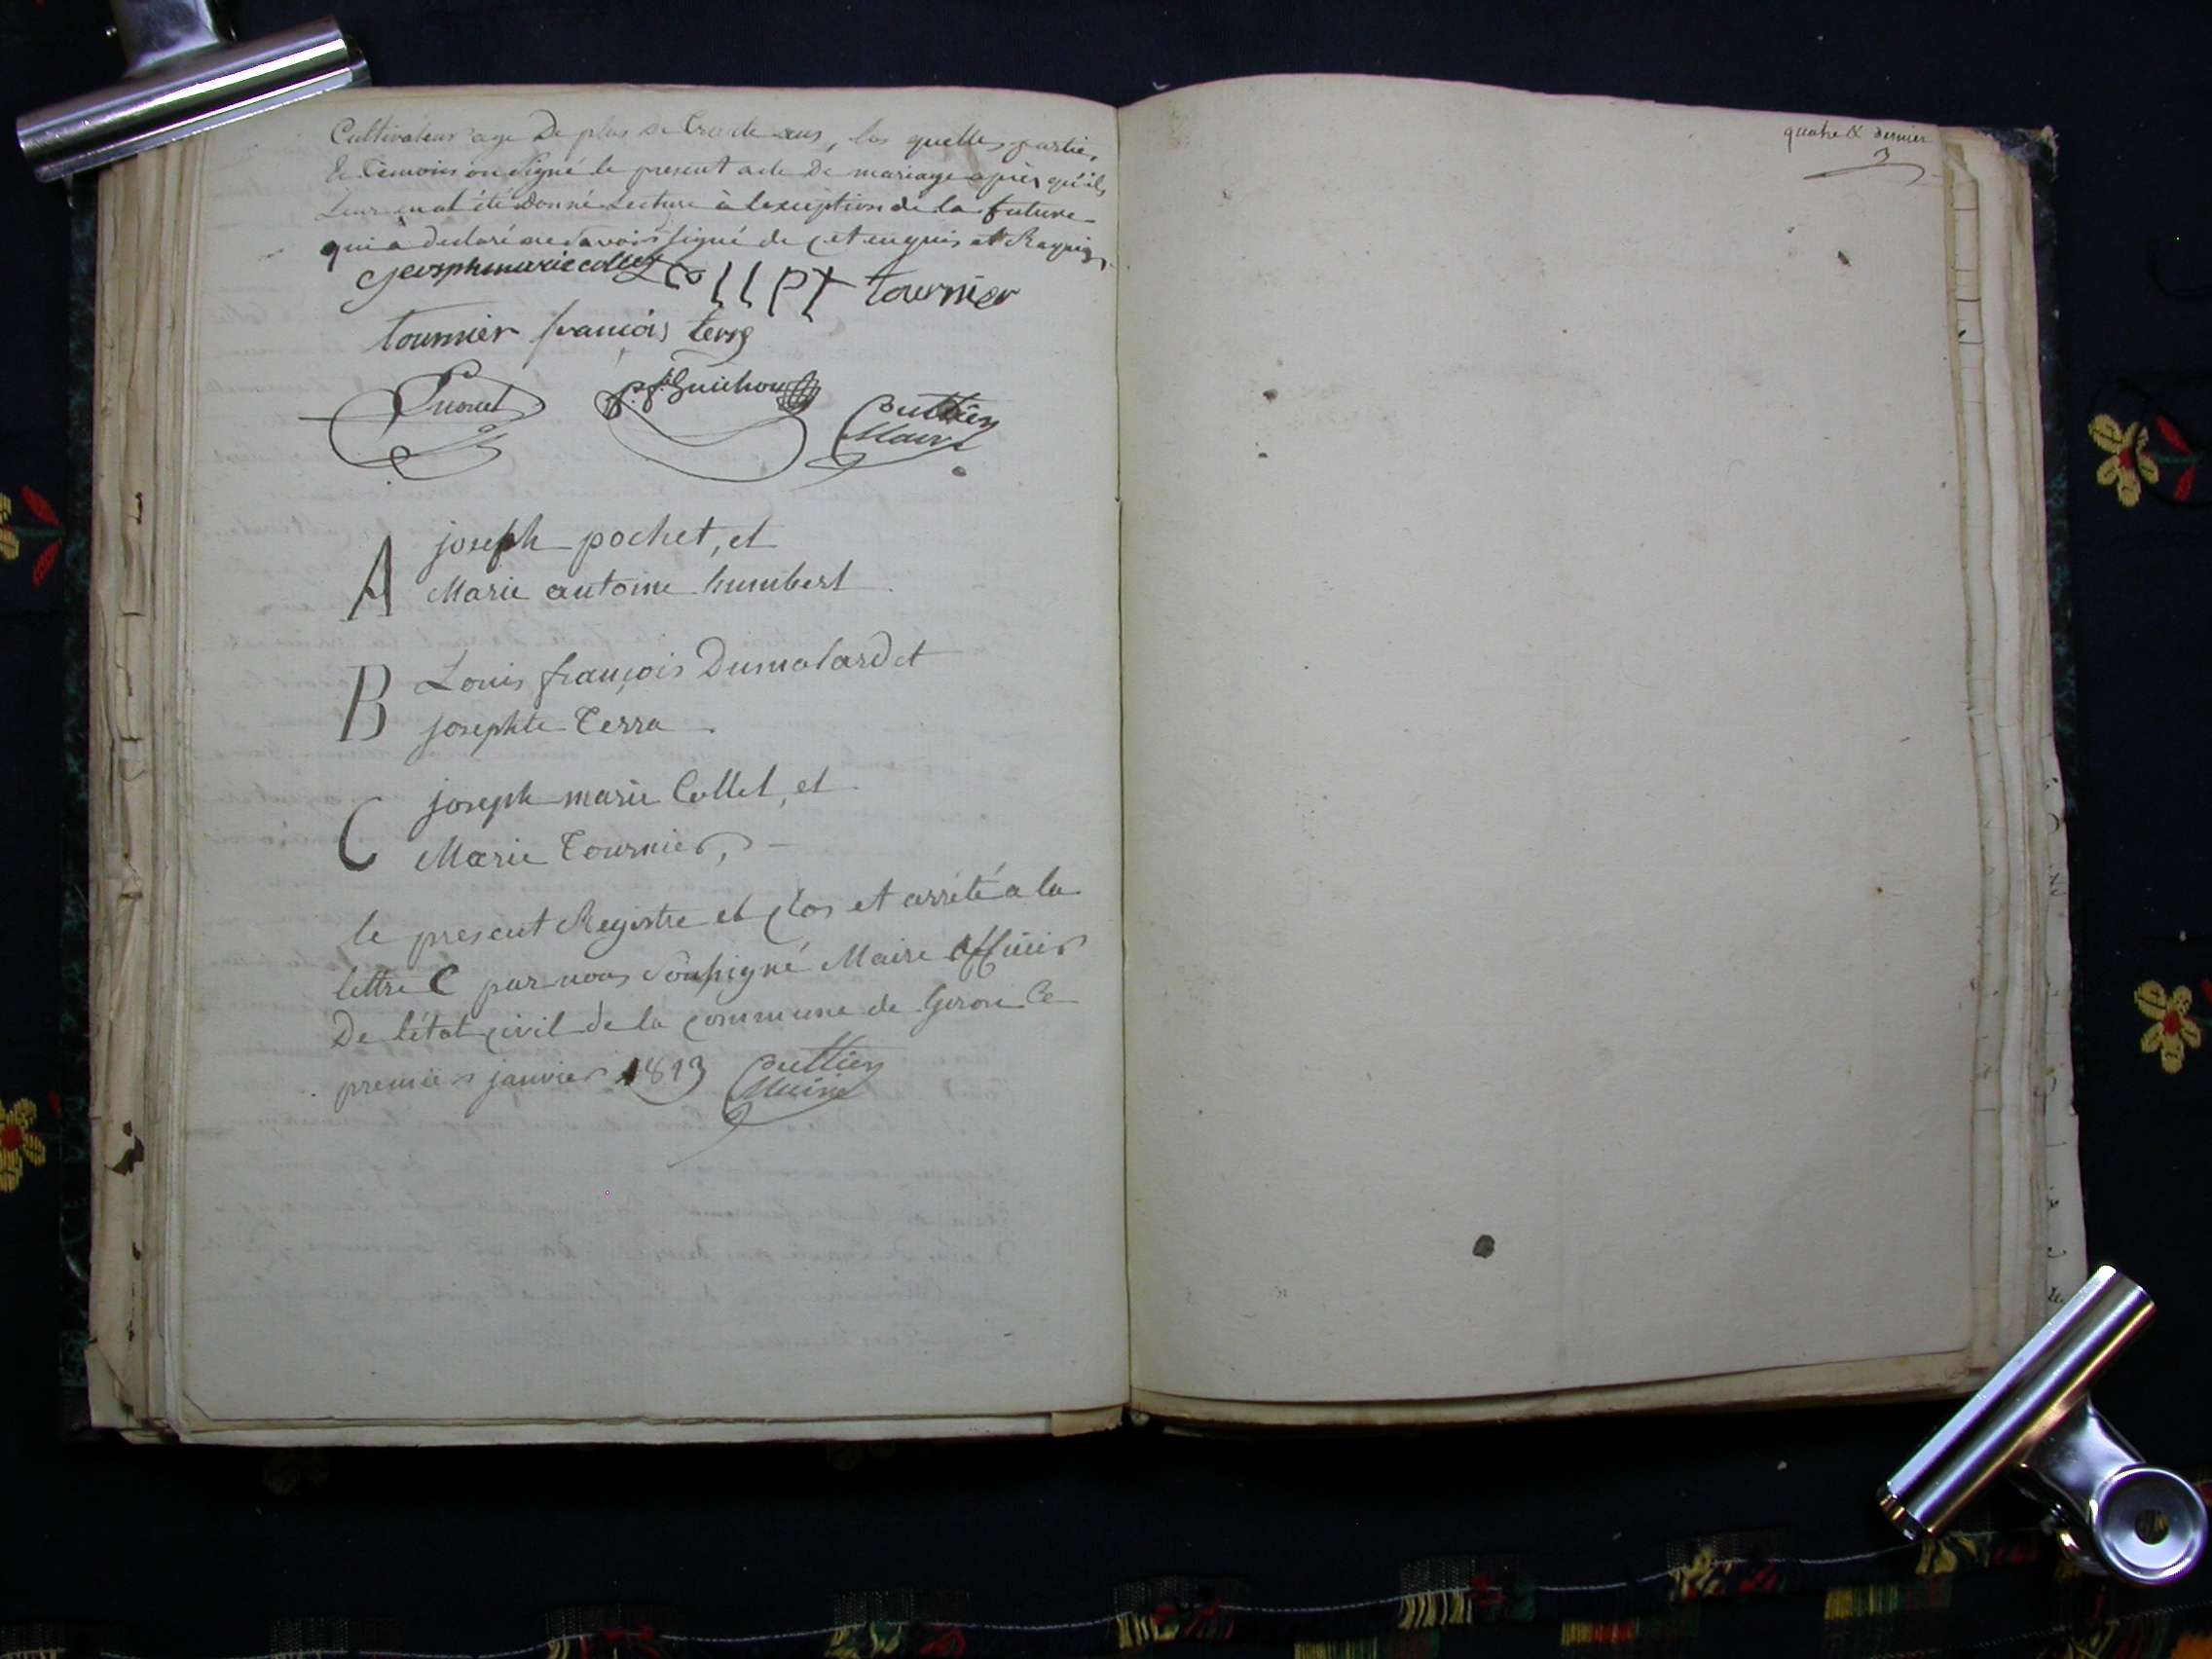 Cultivateur age De plus de trante ans, les quelles partie,
& Temoins on Signé le present acte De mariage après qu'il
Leur en at été Donné Lecture à lexception de la future
qui à declaré ne savoir signé de cet enquis at Requis
joseph marie collet collet tournier
tournier françois terra
P. f. Guichon
Maire
A joseph pochet, et
Marie antoine humbert
B Louis françois Dumolard et
josephte Terra
C joseph marie Collet, et
Marie Tournier,
le present Registre et clos et arrété a la
lettre C par nous Soussigné Maire officier
De l'état civil de la commune de Giron Ce
premier janvier 1813
Maire
quatre & dernier